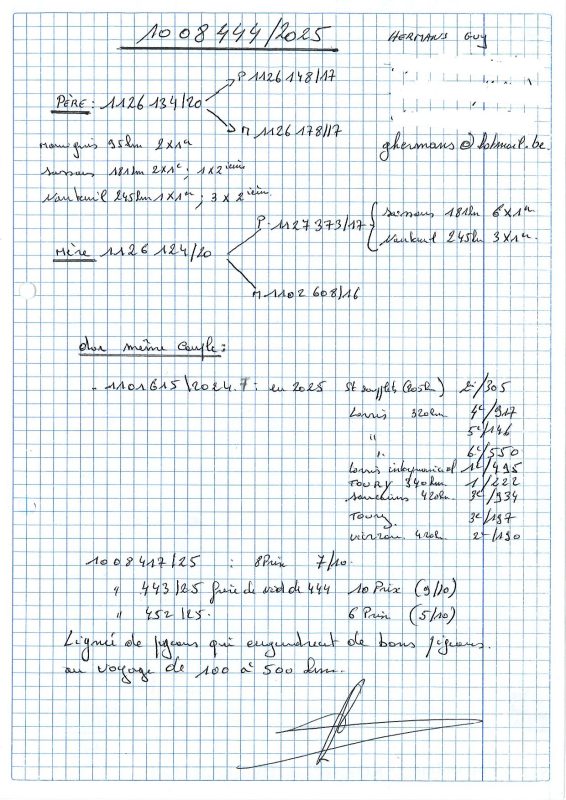 1008444/2025
HERMANS GUY
P 1126148/17
PÈRE : 1126134/20
M 1126178/17
ghermans@hotmail.be
95km 2x1er
181km 2x1e ; 1x2ième
Nanteuil 245km 1x1er ; 3x2ième
P. 1127373/17
Soissons 181km 6x1er
Nanteuil 245km 3x1er.
Mère 1126124/20
M 1102608/16
du même couple :
- 1101615/2024. : en 2025 St soupplets (205km) 2e/305
Lorris 320km 4e/917
" 5e/146
" 6e/550
Lorris 1e/495
TOURY 340km 1/222
420km. 3e/934
Toury. 3e/197
vierzon. 420k. 2e/190
1008417/25 : 8 Prix 7/10.
" 443/25 frère de nid de 444 10 Prix (9/10)
" 452/25. 6 Prix (5/10)
Lignée de pigeons qui engendrent de bons pigeons.
au voyage de 100 à 500 km.